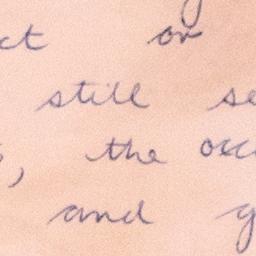 ct on
still se
, the occ
and g